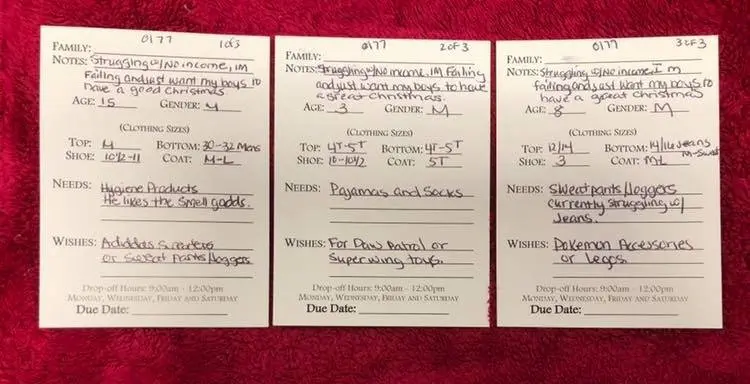 0177 1 of 3
FAMILY:
NOTES: Struggling w/ No income, IM
Failing and just want my boys to
have a good Christmas
AGE: 15 GENDER: M
(CLOTHING SIZES)
TOP: M BOTTOM: 30-32 Mens
SHOE: 10 1/2-11 COAT: M-L
NEEDS: Hygiene Products
He likes the smell goods.
WISHES: Adiddas Sweaters
or Sweat Pants/Joggers
Drop-off Hours: 9:00am - 12:00pm
MONDAY, WEDNESDAY, FRIDAY AND SATURDAY
Due Date:
0177 2 of 3
FAMILY:
NOTES: Struggling w/ No income, IM Failing
and just want my boys to have
a great Christmas.
AGE: 3 GENDER: M
(CLOTHING SIZES)
TOP: 4T-5T BOTTOM: 4T-5T
SHOE: 10-10 1/2 COAT: 5T
NEEDS: Pajamas and Socks
WISHES: For Paw Patrol or
Super wing toys.
Drop-off Hours: 9:00am - 12:00pm
MONDAY, WEDNESDAY, FRIDAY AND SATURDAY
Due Date:
0177 3 of 3
FAMILY:
NOTES: Struggling w/ No income, I m
failing and just want my boys to
have a great Christmas
AGE: 8 GENDER: M
(CLOTHING SIZES)
TOP: 12/14 BOTTOM: 14/16 Jeans
M-Sweat
SHOE: 3 COAT: M-L
NEEDS: Sweatpants/Joggers
Currently struggling w/
Jeans.
WISHES: Pokemon Accessories
or Legos.
Drop-off Hours: 9:00am - 12:00pm
MONDAY, WEDNESDAY, FRIDAY AND SATURDAY
Due Date: